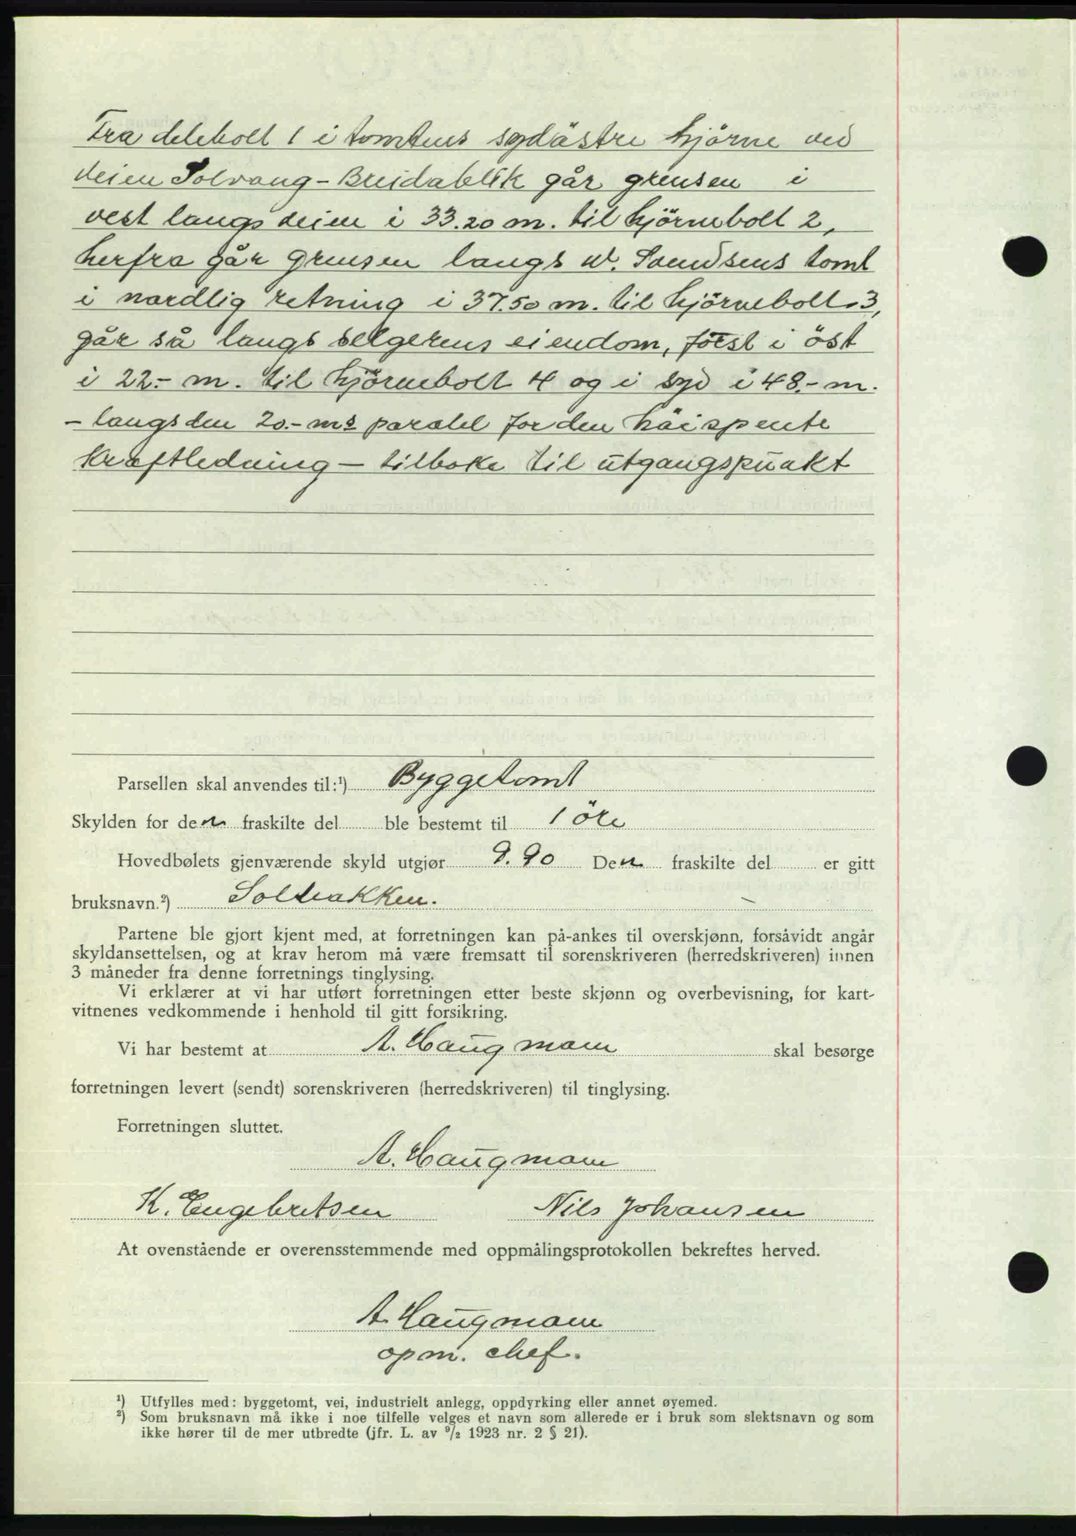 Fra delebolt 1 i tomtens sydästre hjörne ved
veien Solvang - Breidablik går grensen i
vest langs veien i 33.20 m. til hjörnebolt 2,
herfra går grensen langs W. Svendsens tomt
i nordlig retning i 37.50 m. til hjörnebolt 3,
går så langs selgerens eiendom, först i öst
i 22.- m. til hjörnebolt 4 og i syd i 48.- m.
- langs den 20.- ms paralel for den häispente
Kraftledning - tilbake til utgangspunkt
Parsellen skal anvendes til:¹) Byggetomt
Skylden for den fraskilte del ble bestemt til 1 öre
Hovedbølets gjenværende skyld utgjør 9.90 Den fraskilte del er gitt
bruksnavn.²) Solbakken.
Partene ble gjort kjent med, at forretningen kan på-ankes til overskjønn, forsåvidt angår
skyldansettelsen, og at krav herom må være fremsatt til sorenskriveren (herredskriveren) innen
3 måneder fra denne forretnings tinglysing.
Vi erklærer at vi har utført forretningen etter beste skjønn og overbevisning, for kart-
vitnenes vedkommende i henhold til gitt forsikring.
Vi har bestemt at A. Haugmann skal besørge
forretningen levert (sendt) sorenskriveren (herredskriveren) til tinglysing.
Forretningen sluttet.
A. Haugmann
K. Engebretsen Nils Johansen
At ovenstående er overensstemmende med oppmålingsprotokollen bekreftes herved.
A. Haugmann
opm. chef.
¹) Utfylles med: byggetomt, vei, industrielt anlegg, oppdyrking eller annet øyemed.
²) Som bruksnavn må ikke i noe tilfelle velges et navn som allerede er i bruk som slektsnavn og som
ikke hører til de mer utbredte (jfr. L. av ⁹/₂ 1923 nr. 2 § 21).